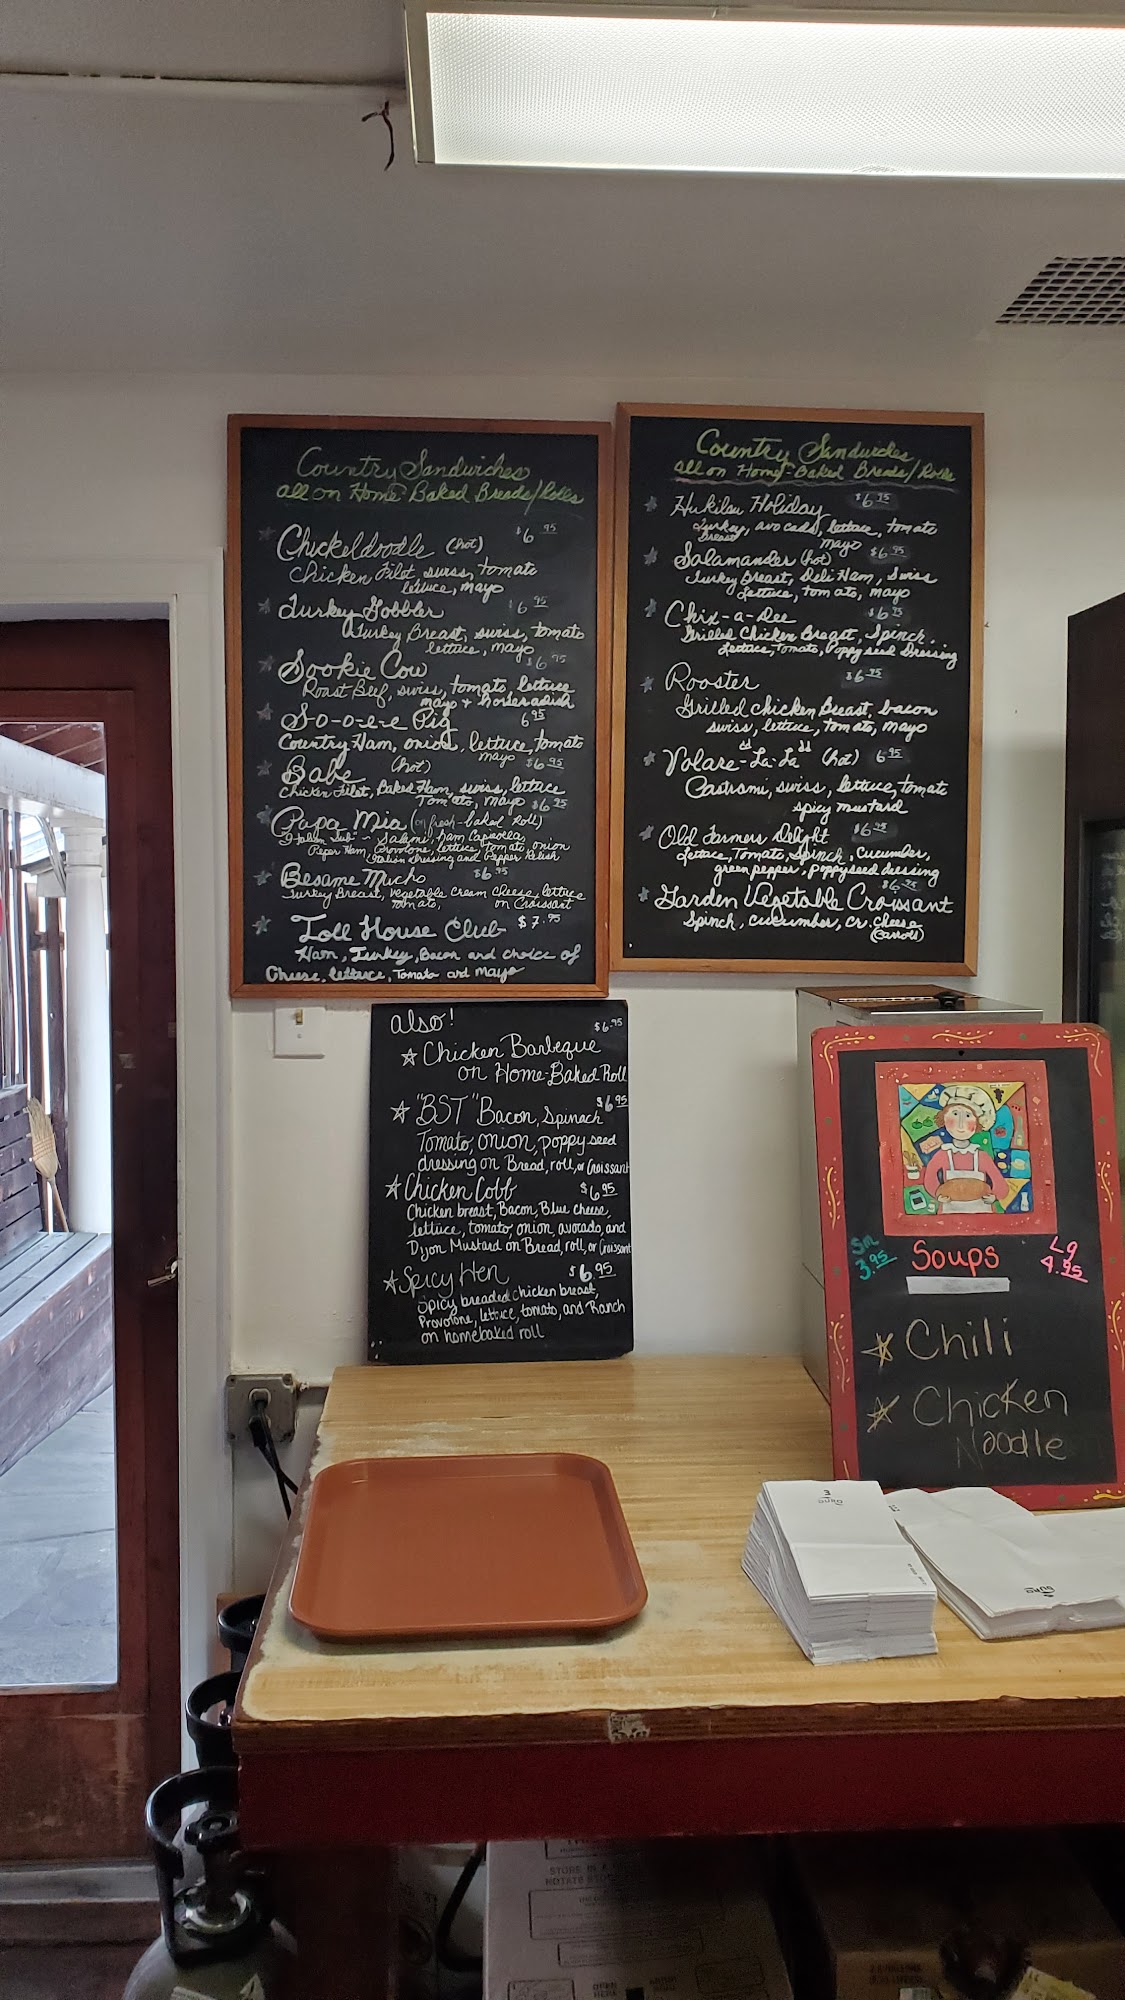 Country Sandwiches
all on Home-Baked Breads/Rolls
Chickeldoodle (hot) $6.95
Chicken Filet, swiss, tomato
lettuce, mayo
Turkey Gobbler $6.95
Turkey Breast, swiss, tomato
lettuce, mayo
Sookie Cow $6.95
Roast Beef, swiss, tomato, lettuce
mayo + horseradish
S-o-o-e-e Pig 6.95
Country Ham, onion, lettuce, tomato
mayo
Babe (hot) $6.95
Chicken Filet, Baked Ham, swiss, lettuce
Tomato, mayo
Papa Mia (on fresh-baked Roll) $6.95
Italian Sub - Salami, ham Capicolla,
Peper Ham, Provolone, lettuce, tomato, onion
Italian Dressing and Pepper Relish
Besame Mucho $6.95
Turkey Breast, vegetable cream cheese, lettuce
tomato, on Croissant
Toll House Club- $7.95
Ham, Turkey, Bacon and choice of
Cheese, lettuce, Tomato and mayo
Country Sandwiches
all on Home-Baked Breads/Rolls
Hukilau Holiday $6.95
Turkey, avocado, lettuce, tomato
Breast mayo
Salamander (hot) $6.95
Turkey Breast, Deli Ham, Swiss
Lettuce, tomato, mayo
Chix-a-Dee $6.95
Grilled Chicken Breast, Spinch,
Lettuce, Tomato, Poppy seed Dressing
Rooster $6.95
Grilled chicken breast, bacon
swiss, lettuce, tomato, mayo
Volare-"La-La" (hot) 6.95
Pastrami, swiss, lettuce, tomato
spicy mustard
Old Farmers Delight $6.95
Lettuce, Tomato, Spinch, cucumber,
green pepper, poppy seed dressing
Garden Vegetable Croissant $6.95
Spinch, cucumber, cr. cheese
(carrots)
also!
$6.95
Chicken Barbeque
on Home-Baked Roll
"BST" Bacon, Spinach $6.95
Tomato, onion, poppy seed
dressing on Bread, roll, or Croissant
Chicken Cobb $6.95
Chicken breast, Bacon, Blue cheese,
lettuce, tomato, onion, avorado, and
Dijon Mustard on Bread, roll, or Croissant
Spicy Hen $6.95
Spicy breaded chicken breast,
Provolone, lettuce, tomato, and Ranch
on homebaked roll
Sm
3.95
Soups
Lg
4.95
Chili
Chicken
Noodle
3
DURO
DURO
STORE IN A